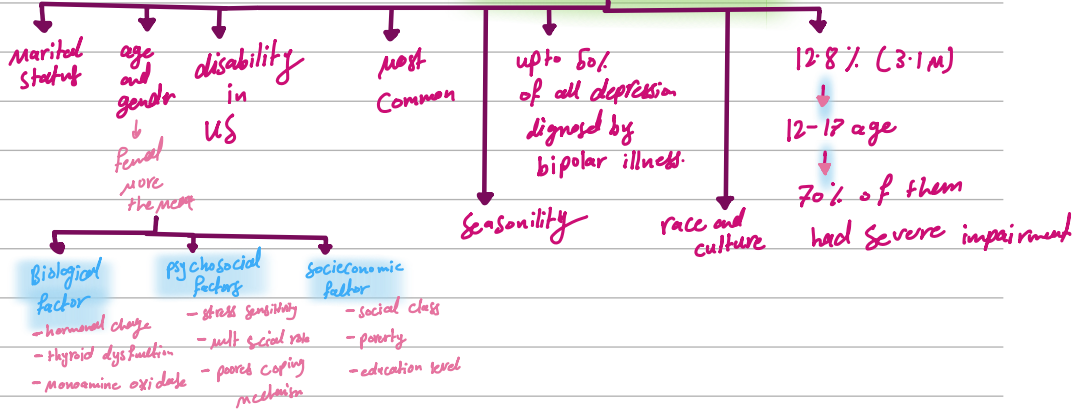 Marital
status
age
and
gender
femal
more
disability
in
US
most
common
seasonility
up to 50%
of all depression
dignosed by
bipolar illness.
race and
culture
12.8% (3.1M)
12-17 age
70% of them
had severe impairment
Biological
factor
- hormonal change
- thyroid dysfunction
- monoamine oxidase
psychosocial
factors
- stress sensitivity
- mult social role
- poores coping
mechanism
socieconomic
factor
- social class
- poverty
- education level